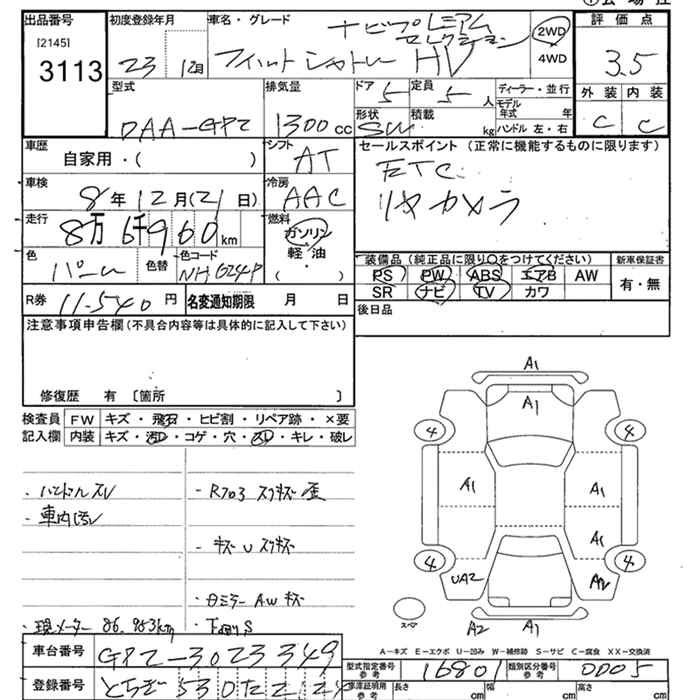 出品番号
[2145]
3113
初度登録年月
23 12月
車名・グレード
ナビプレミアム
セレクション
フィットシャトル HV
2WD
4WD
評価点
3.5
外装 内装
C C
型式
DAA-GP2
排気量
1300cc
ドア
5
定員
5人
形状
SW
積載
kg
ディーラー・並行
モデル年式 年
ハンドル 左・右
車歴
自家用・( )
シフト
AT
セールスポイント (正常に機能するものに限ります)
ETC
リヤカメラ
車検
8年12月(21日)
冷房
AAC
走行
8万6千960km
燃料
ガソリン
軽・油
( )
色
パール
色替
色コード
NH624P
装備品 (純正品に限り○をつけてください)
PS PW ABS エアB AW
SR ナビ TV カワ
新車保証書
有・無
R券
11,540円
名変通知期限 月 日
後日品
注意事項申告欄(不具合内容等は具体的に記入して下さい)
修復歴 有 〔箇所 〕
検査員
記入欄
FW キズ・飛石・ヒビ割・リペア跡・×要
内装 キズ・汚D・コゲ・穴・スレ・キレ・破レ
・ハンドルスレ
・車内汚レ
・現メーター 86,963km
・キズUスリキズ
A1
A1
4
4
A1
A1
A1
4
4
UA2
A2
スペア
A2
A1
A-キズ E-エクボ U-凹み W-補修跡 S-サビ C-腐食 XX-交換済
車台番号
GP2-3023349
型式指定番号
参考
16801
類別区分番号
参考
0005
登録番号
とちぎ530
車庫証明用
参考
長さ cm
幅 cm
高さ cm